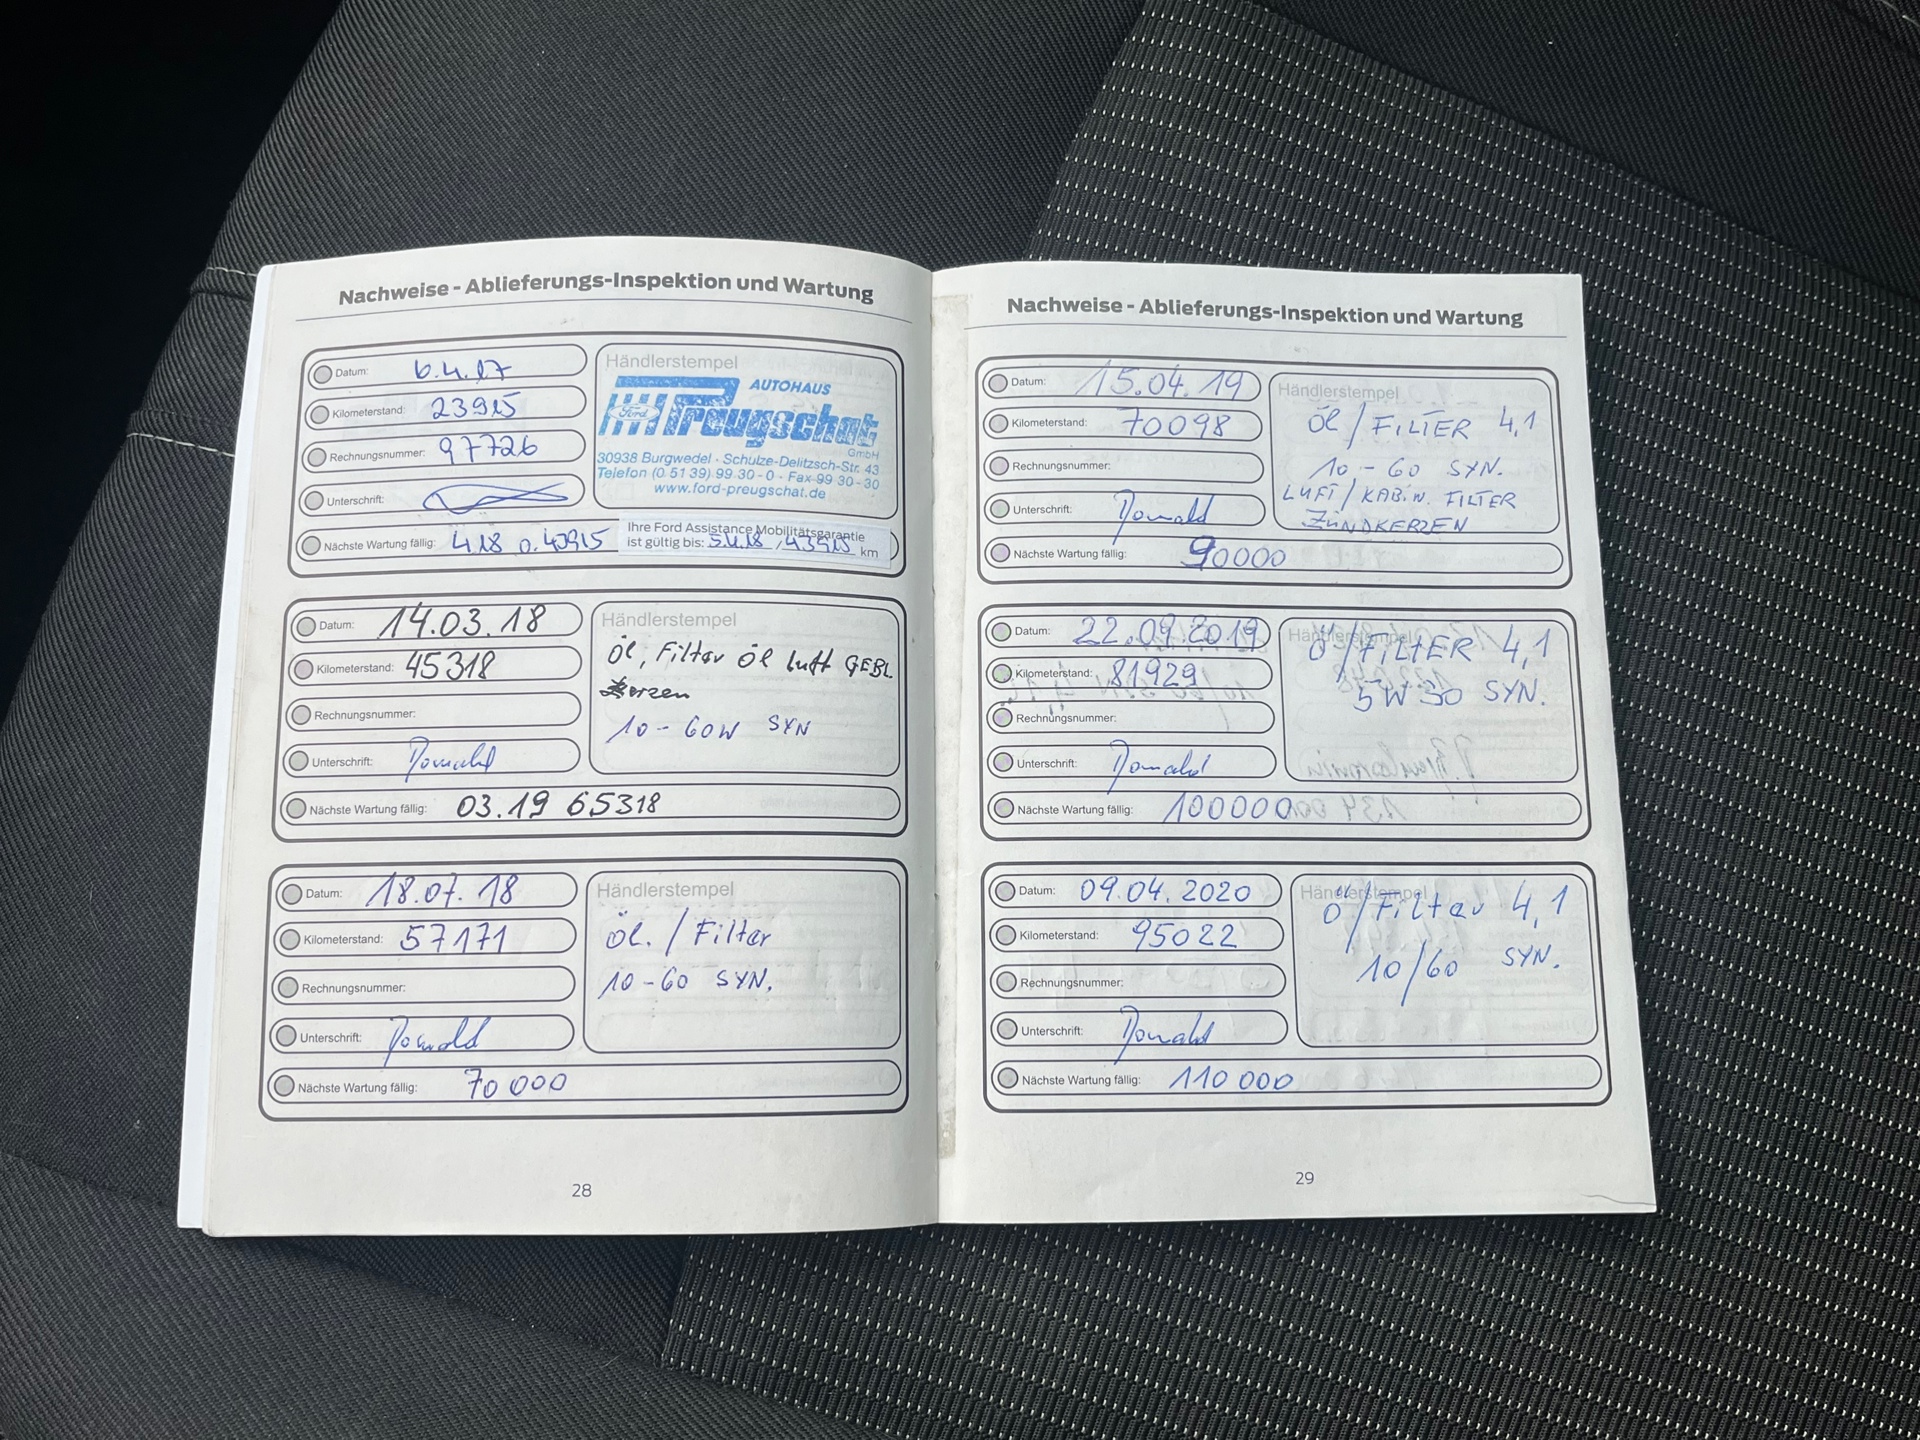 Nachweise - Ablieferungs-Inspektion und Wartung
Datum: 6.4.17
Kilometerstand: 23915
Rechnungsnummer: 97726
Unterschrift:
Nächste Wartung fällig: 4.18 o. 43915
Händlerstempel
AUTOHAUS
Ford Preugschat
GmbH
30938 Burgwedel · Schulze-Delitzsch-Str. 43
Telefon (0 51 39) 99 30 - 0 · Fax 99 30 - 30
www.ford-preugschat.de
Ihre Ford Assistance Mobilitätsgarantie
ist gültig bis: 5.4.18 / 43915 km
Datum: 14.03.18
Kilometerstand: 45318
Rechnungsnummer:
Unterschrift: Donald
Nächste Wartung fällig: 03.19 65318
Händlerstempel
Öl, Filter Öl Luft GEBL.
Kerzen
10-60W SYN
Datum: 18.07.18
Kilometerstand: 57171
Rechnungsnummer:
Unterschrift: Donald
Nächste Wartung fällig: 70 000
Händlerstempel
Öl. / Filter
10-60 SYN.
28
Nachweise - Ablieferungs-Inspektion und Wartung
Datum: 15.04.19
Kilometerstand: 70098
Rechnungsnummer:
Unterschrift: Donald
Nächste Wartung fällig: 90000
Händlerstempel
Öl / FILTER 4,1
10-60 SYN.
LUFT / KABIN. FILTER
ZÜNDKERZEN
Datum: 22.09.2019
Kilometerstand: 81929
Rechnungsnummer:
Unterschrift: Donald
Nächste Wartung fällig: 100000
Händlerstempel
Ö / FILTER 4,1
5W30 SYN.
Datum: 09.04.2020
Kilometerstand: 95022
Rechnungsnummer:
Unterschrift: Donald
Nächste Wartung fällig: 110 000
Händlerstempel
Ö / Filter 4,1
10/60 SYN.
29